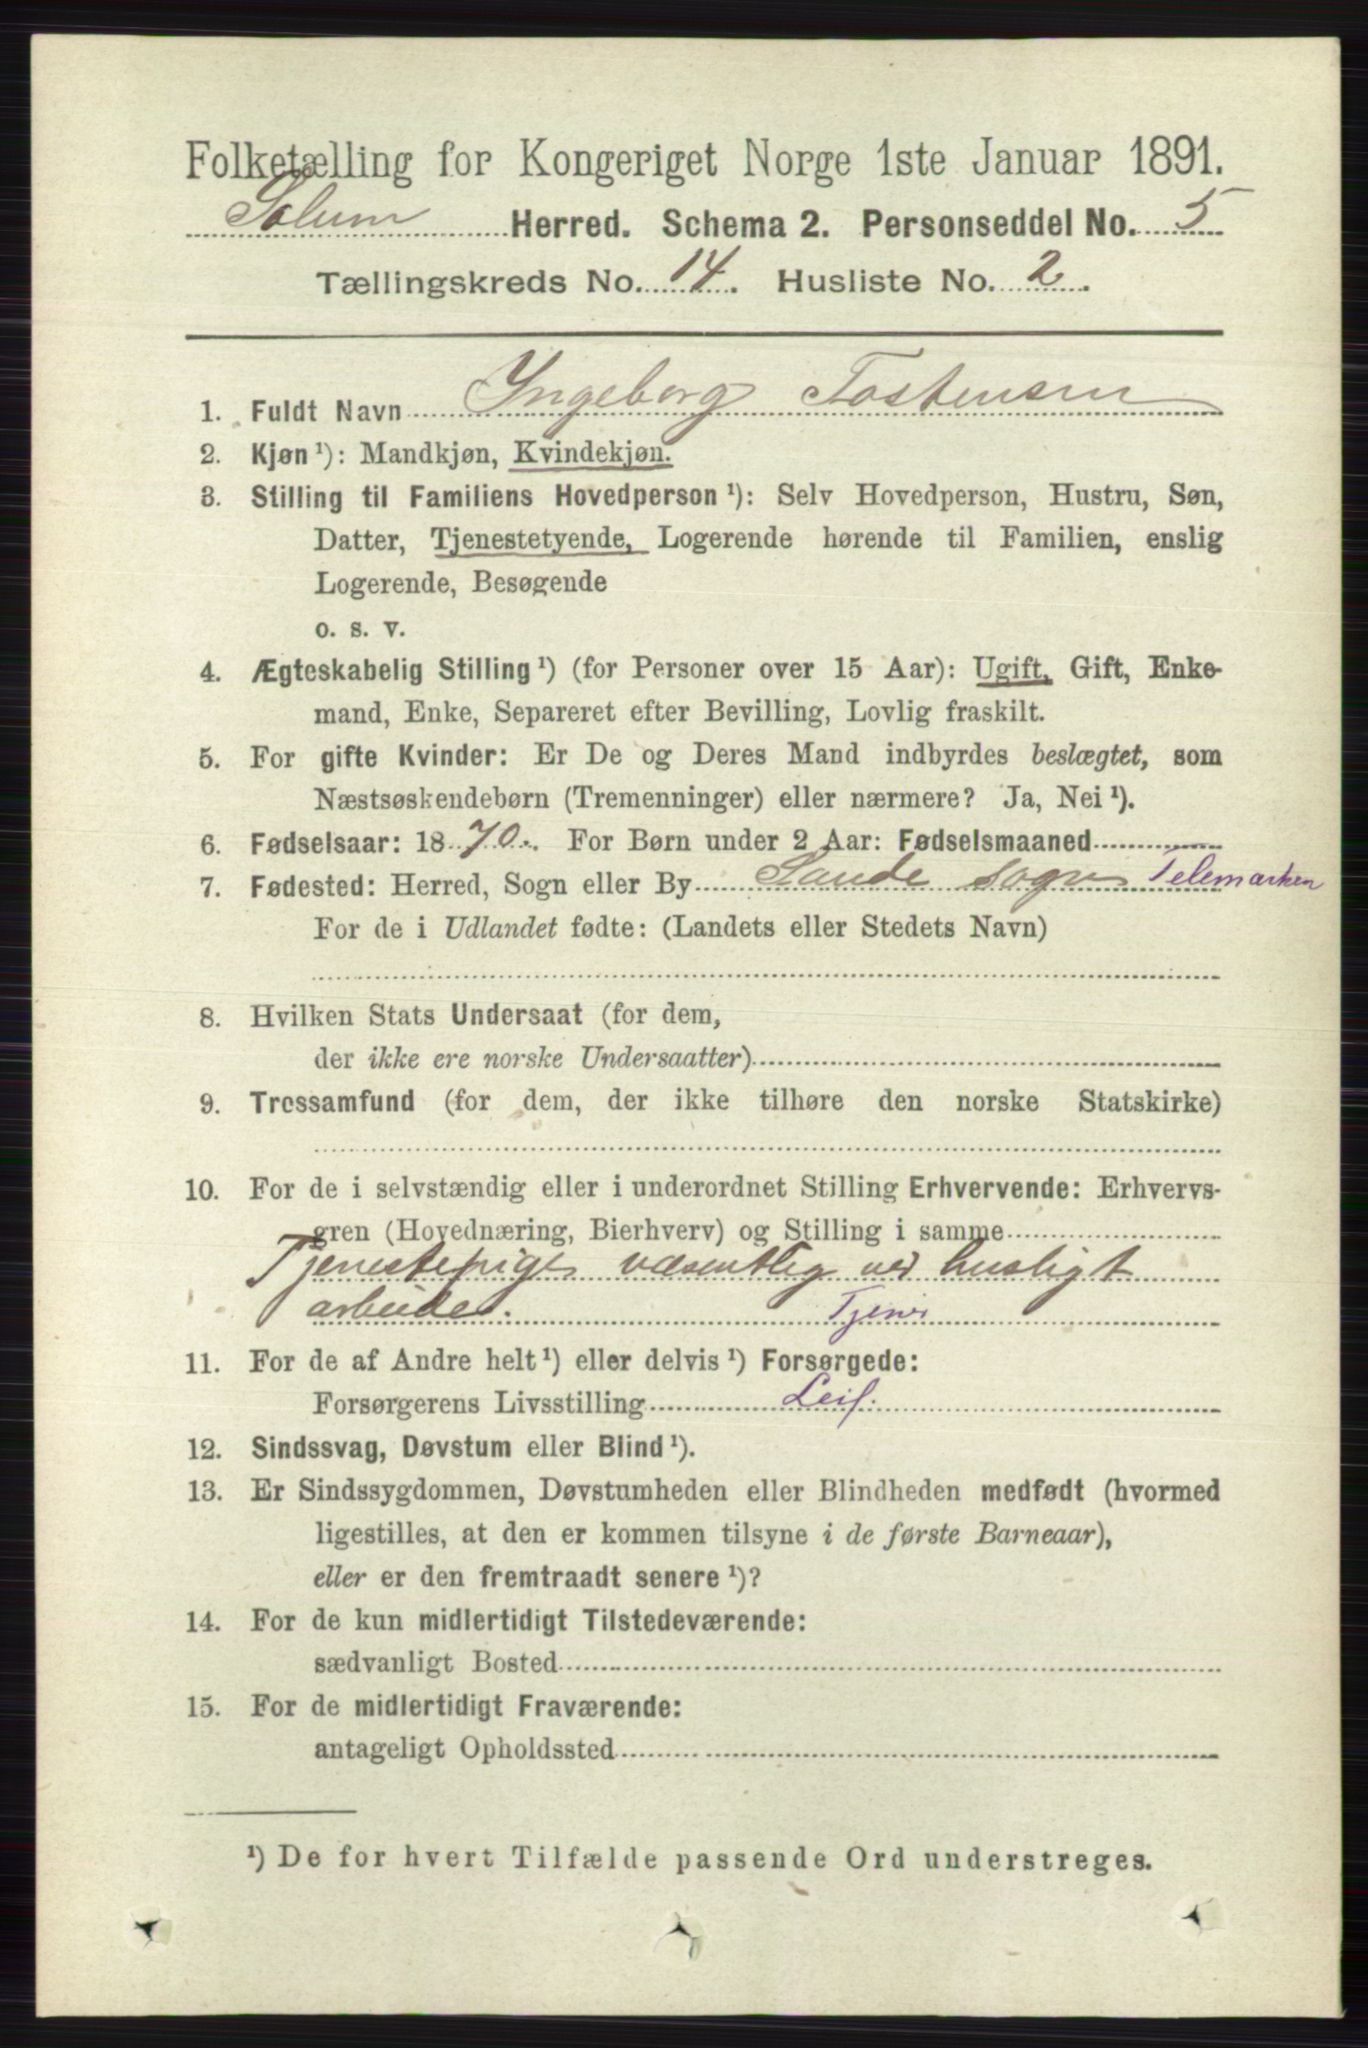 Folketælling for Kongeriget Norge 1ste Januar 1891.
Solum Herred. Schema 2. Personseddel No. 5
Tællingskreds No. 14. Husliste No. 2.
1. Fuldt Navn Ingeborg Tostensen
2. Kjøn ¹): Mandkjøn, Kvindekjøn.
3. Stilling til Familiens Hovedperson ¹): Selv Hovedperson, Hustru, Søn,
Datter, Tjenestetyende, Logerende hørende til Familien, enslig
Logerende, Besøgende
o. s. v.
4. Ægteskabelig Stilling ¹) (for Personer over 15 Aar): Ugift, Gift, Enke-
mand, Enke, Separeret efter Bevilling, Lovlig fraskilt.
5. For gifte Kvinder: Er De og Deres Mand indbyrdes beslægtet, som
Næstsøskendebørn (Tremenninger) eller nærmere? Ja, Nei ¹).
6. Fødselsaar: 1870. For Børn under 2 Aar: Fødselsmaaned
7. Fødested: Herred, Sogn eller By Saude sogn Telemarken
For de i Udlandet fødte: (Landets eller Stedets Navn)
8. Hvilken Stats Undersaat (for dem,
der ikke ere norske Undersaatter)
9. Trossamfund (for dem, der ikke tilhøre den norske Statskirke)
10. For de i selvstændig eller i underordnet Stilling Erhvervende: Erhvervs-
gren (Hovednæring, Bierhverv) og Stilling i samme
Tjenestepige væsentlig ved husligt
arbeide. Tjener
11. For de af Andre helt ¹) eller delvis ¹) Forsørgede:
Forsørgerens Livsstilling Leif.
12. Sindssvag, Døvstum eller Blind ¹).
13. Er Sindssygdommen, Døvstumheden eller Blindheden medfødt (hvormed
ligestilles, at den er kommen tilsyne i de første Barneaar),
eller er den fremtraadt senere ¹)?
14. For de kun midlertidigt Tilstedeværende:
sædvanligt Bosted
15. For de midlertidigt Fraværende:
antageligt Opholdssted
¹) De for hvert Tilfælde passende Ord understreges.